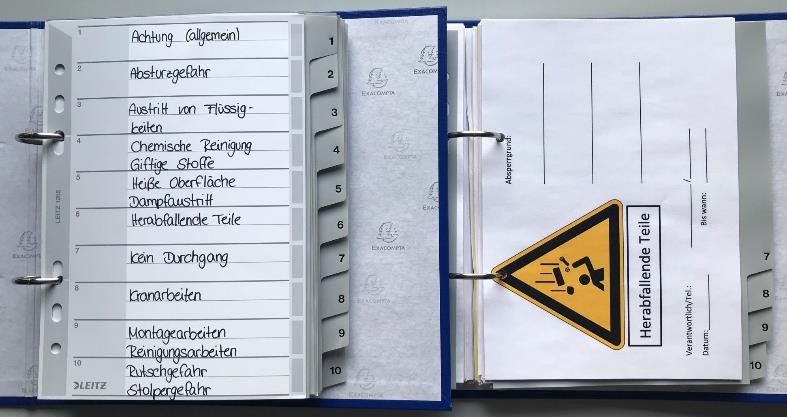 1 Achtung (allgemein) 1
2 Absturzgefahr 2
3 Austritt von Flüssig- 3
keiten
4 Chemische Reinigung 4
Giftige Stoffe
5 Heiße Oberfläche 5
Dampfaustritt
6 Herabfallende Teile 6
7 Kein Durchgang 7
8 Kranarbeiten 8
9 Montagearbeiten 9
Reinigungsarbeiten
10 Rutschgefahr 10
Stolpergefahr
LEITZ
LEITZ 1205
EXACOMPTA
EXACOMPTA
EXACOMPTA
EXACOMPTA
EXACOMPTA
Absperrgrund:
Herabfallende Teile
Verantwortlich/Tel.: /
Datum: Bis wann:
7
8
9
10
EXACOMPTA